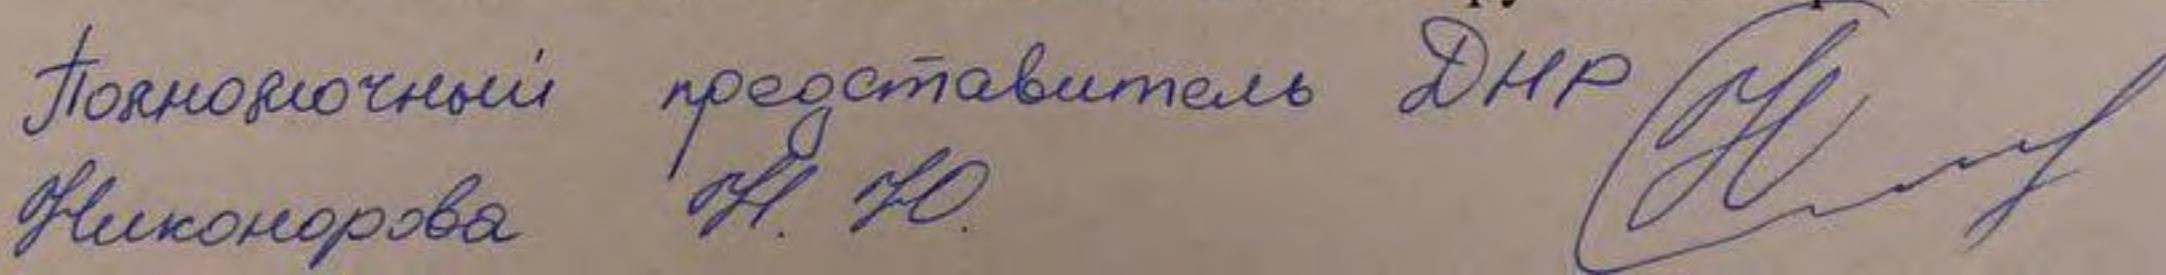 Полномочный представитель ДНР
Никонорова Н. Ю.